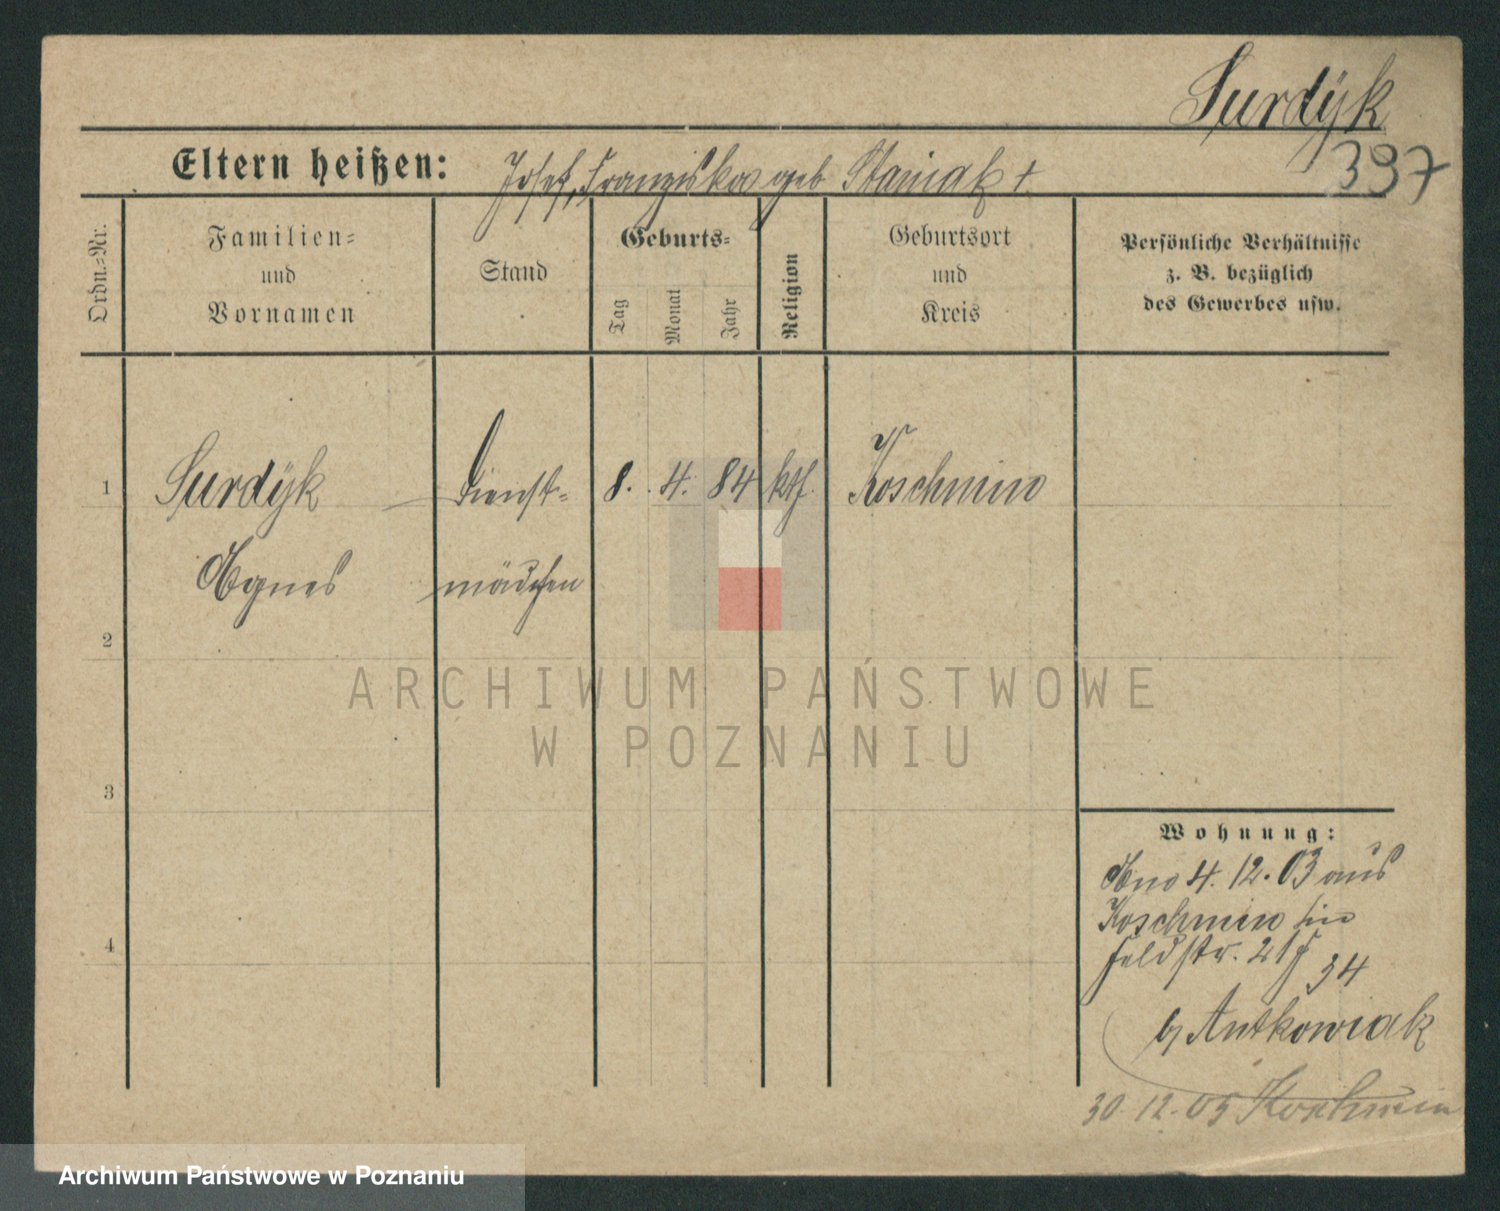 Surdÿk
397
Eltern heißen: Josef, Franziska geb Staniak +
Ordn.-Nr.
Familien-
und
Vornamen
Stand
Geburts-
Tag
Monat
Jahr
Religion
Geburtsort
und
Kreis
Persönliche Verhältnisse
z. B. bezüglich
des Gewerbes usw.
1 Surdÿk Dienst- 8. 4. 84 kth. Koschmin
Agnes mädchen
2
ARCHIWUM PAŃSTWOWE
W POZNANIU
3
Wohnung:
4. 12. 03 aus
Koschmin
4
Feldstr. 34
Antkowiak
30. 12. 05 Koschmin
Archiwum Państwowe w Poznaniu